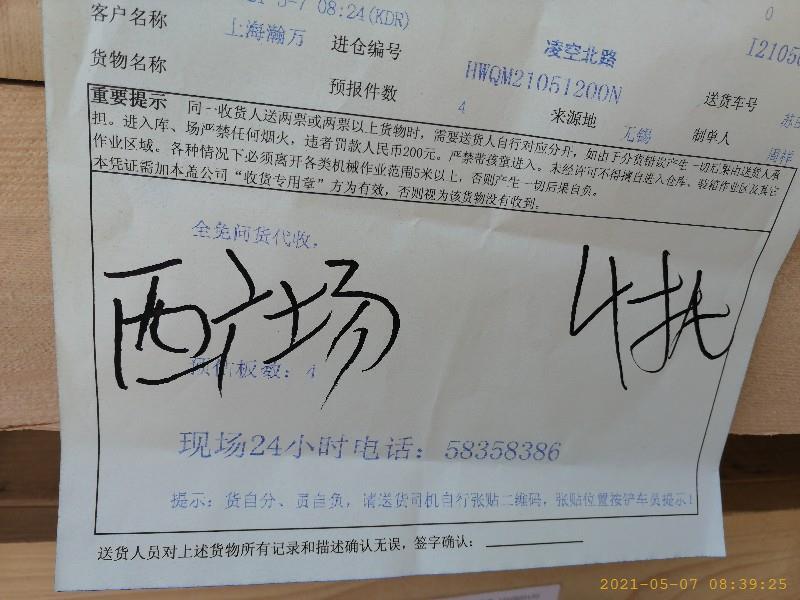 -7 08:24(KDR)
0
客户名称 上海瀚万 进仓编号 凌空北路
HWQM21051200N I2105
货物名称 预报件数 4 来源地 无锡 送货车号
制单人 周祥
重要提示 同一收货人送两票或两票以上货物时，需要送货人自行对应分开，如由于分货错误产生一切后果由送货人承
担。进入库、场严禁任何烟火，违者罚款人民币200元。严禁带孩童进入。未经许可不得擅自进入仓库、装箱作业区及其它
作业区域。各种情况下必须离开各类机械作业范围5米以上，否则产生一切后果自负。
本凭证需加本盖公司“收货专用章”方为有效，否则视为该货物没有收到。
全免问货代收。
西广场 4托
预估板数：4
现场24小时电话：58358386
提示：货自分、责自负，请送货司机自行张贴二维码，张贴位置按铲车员提示！
送货人员对上述货物所有记录和描述确认无误，签字确认：
2021-05-07 08:39:25